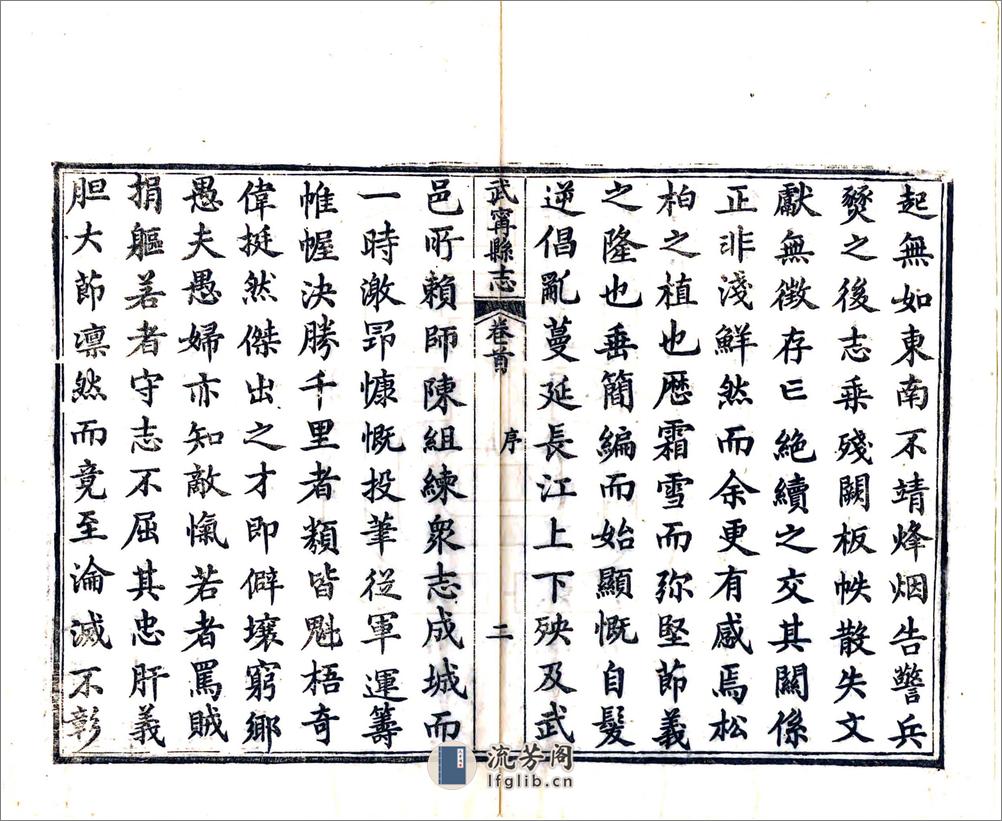 起無如東南不靖烽烟告警兵
燹之後志乗殘闕板帙散失文
獻無徵存亡絶續之交其關係
正非淺鮮然而余更有感焉松
柏之植也歴霜雪而弥堅節義
之隆也垂簡編而始顯慨自髮
逆倡亂蔓延長江上下殃及武
武寧縣志 卷首 序 二
邑所賴師陳組練衆志成城而
一時激昂慷慨投筆從軍運籌
帷幄決勝千里者類皆魁梧奇
偉挺然傑出之才即僻壤窮鄉
愚夫愚婦亦知敵愾若者罵賊
捐軀若者守志不屈其忠肝義
胆大節凛然而竟至淪滅不彰
流芳阁
lfglib.cn